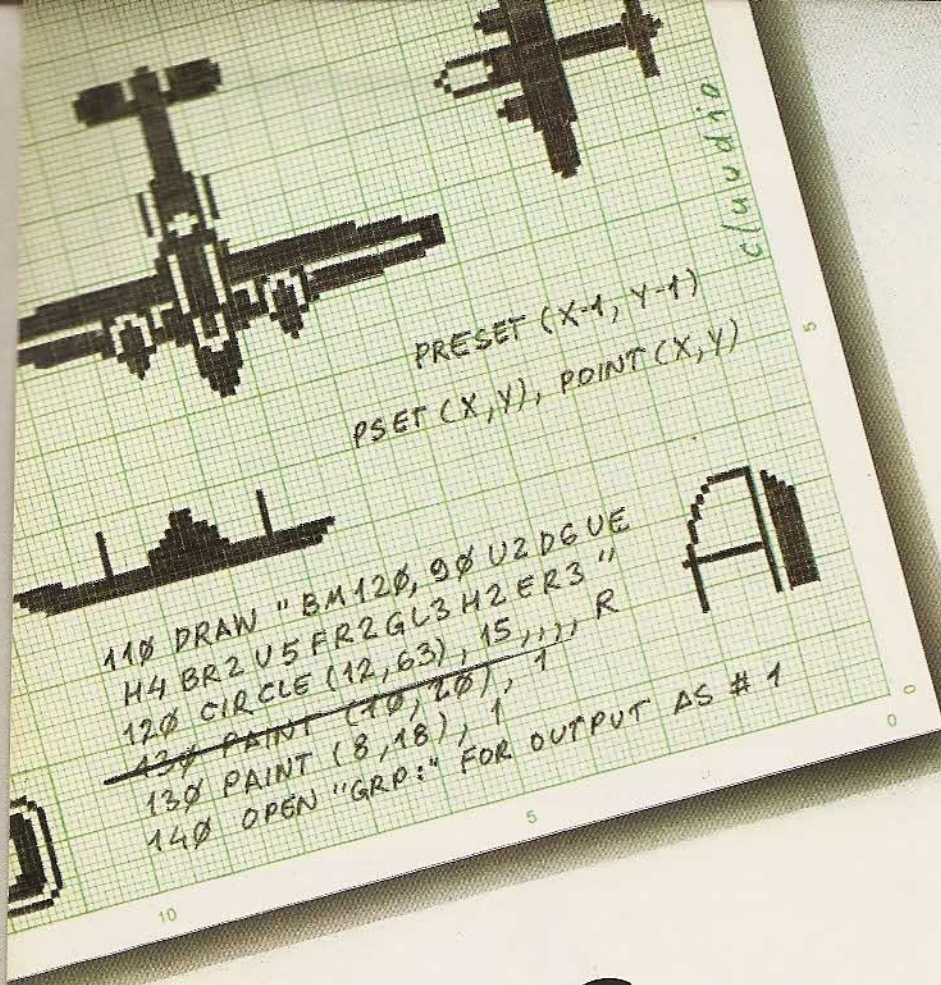 claudio
PRESET (X-1, Y-1)
PSET (X,Y), POINT (X,Y)
11Ø DRAW "BM12Ø, 9Ø U2 D6 UE
H4 BR2 U5 FR2 GL3 H2 ER3"
12Ø CIRCLE (12,63), 15,,,, R
13Ø PAINT (1Ø, 2Ø), 1
13Ø PAINT (8,18), 1
14Ø OPEN "GRP:" FOR OUTPUT AS # 1
5
0
0
5
10